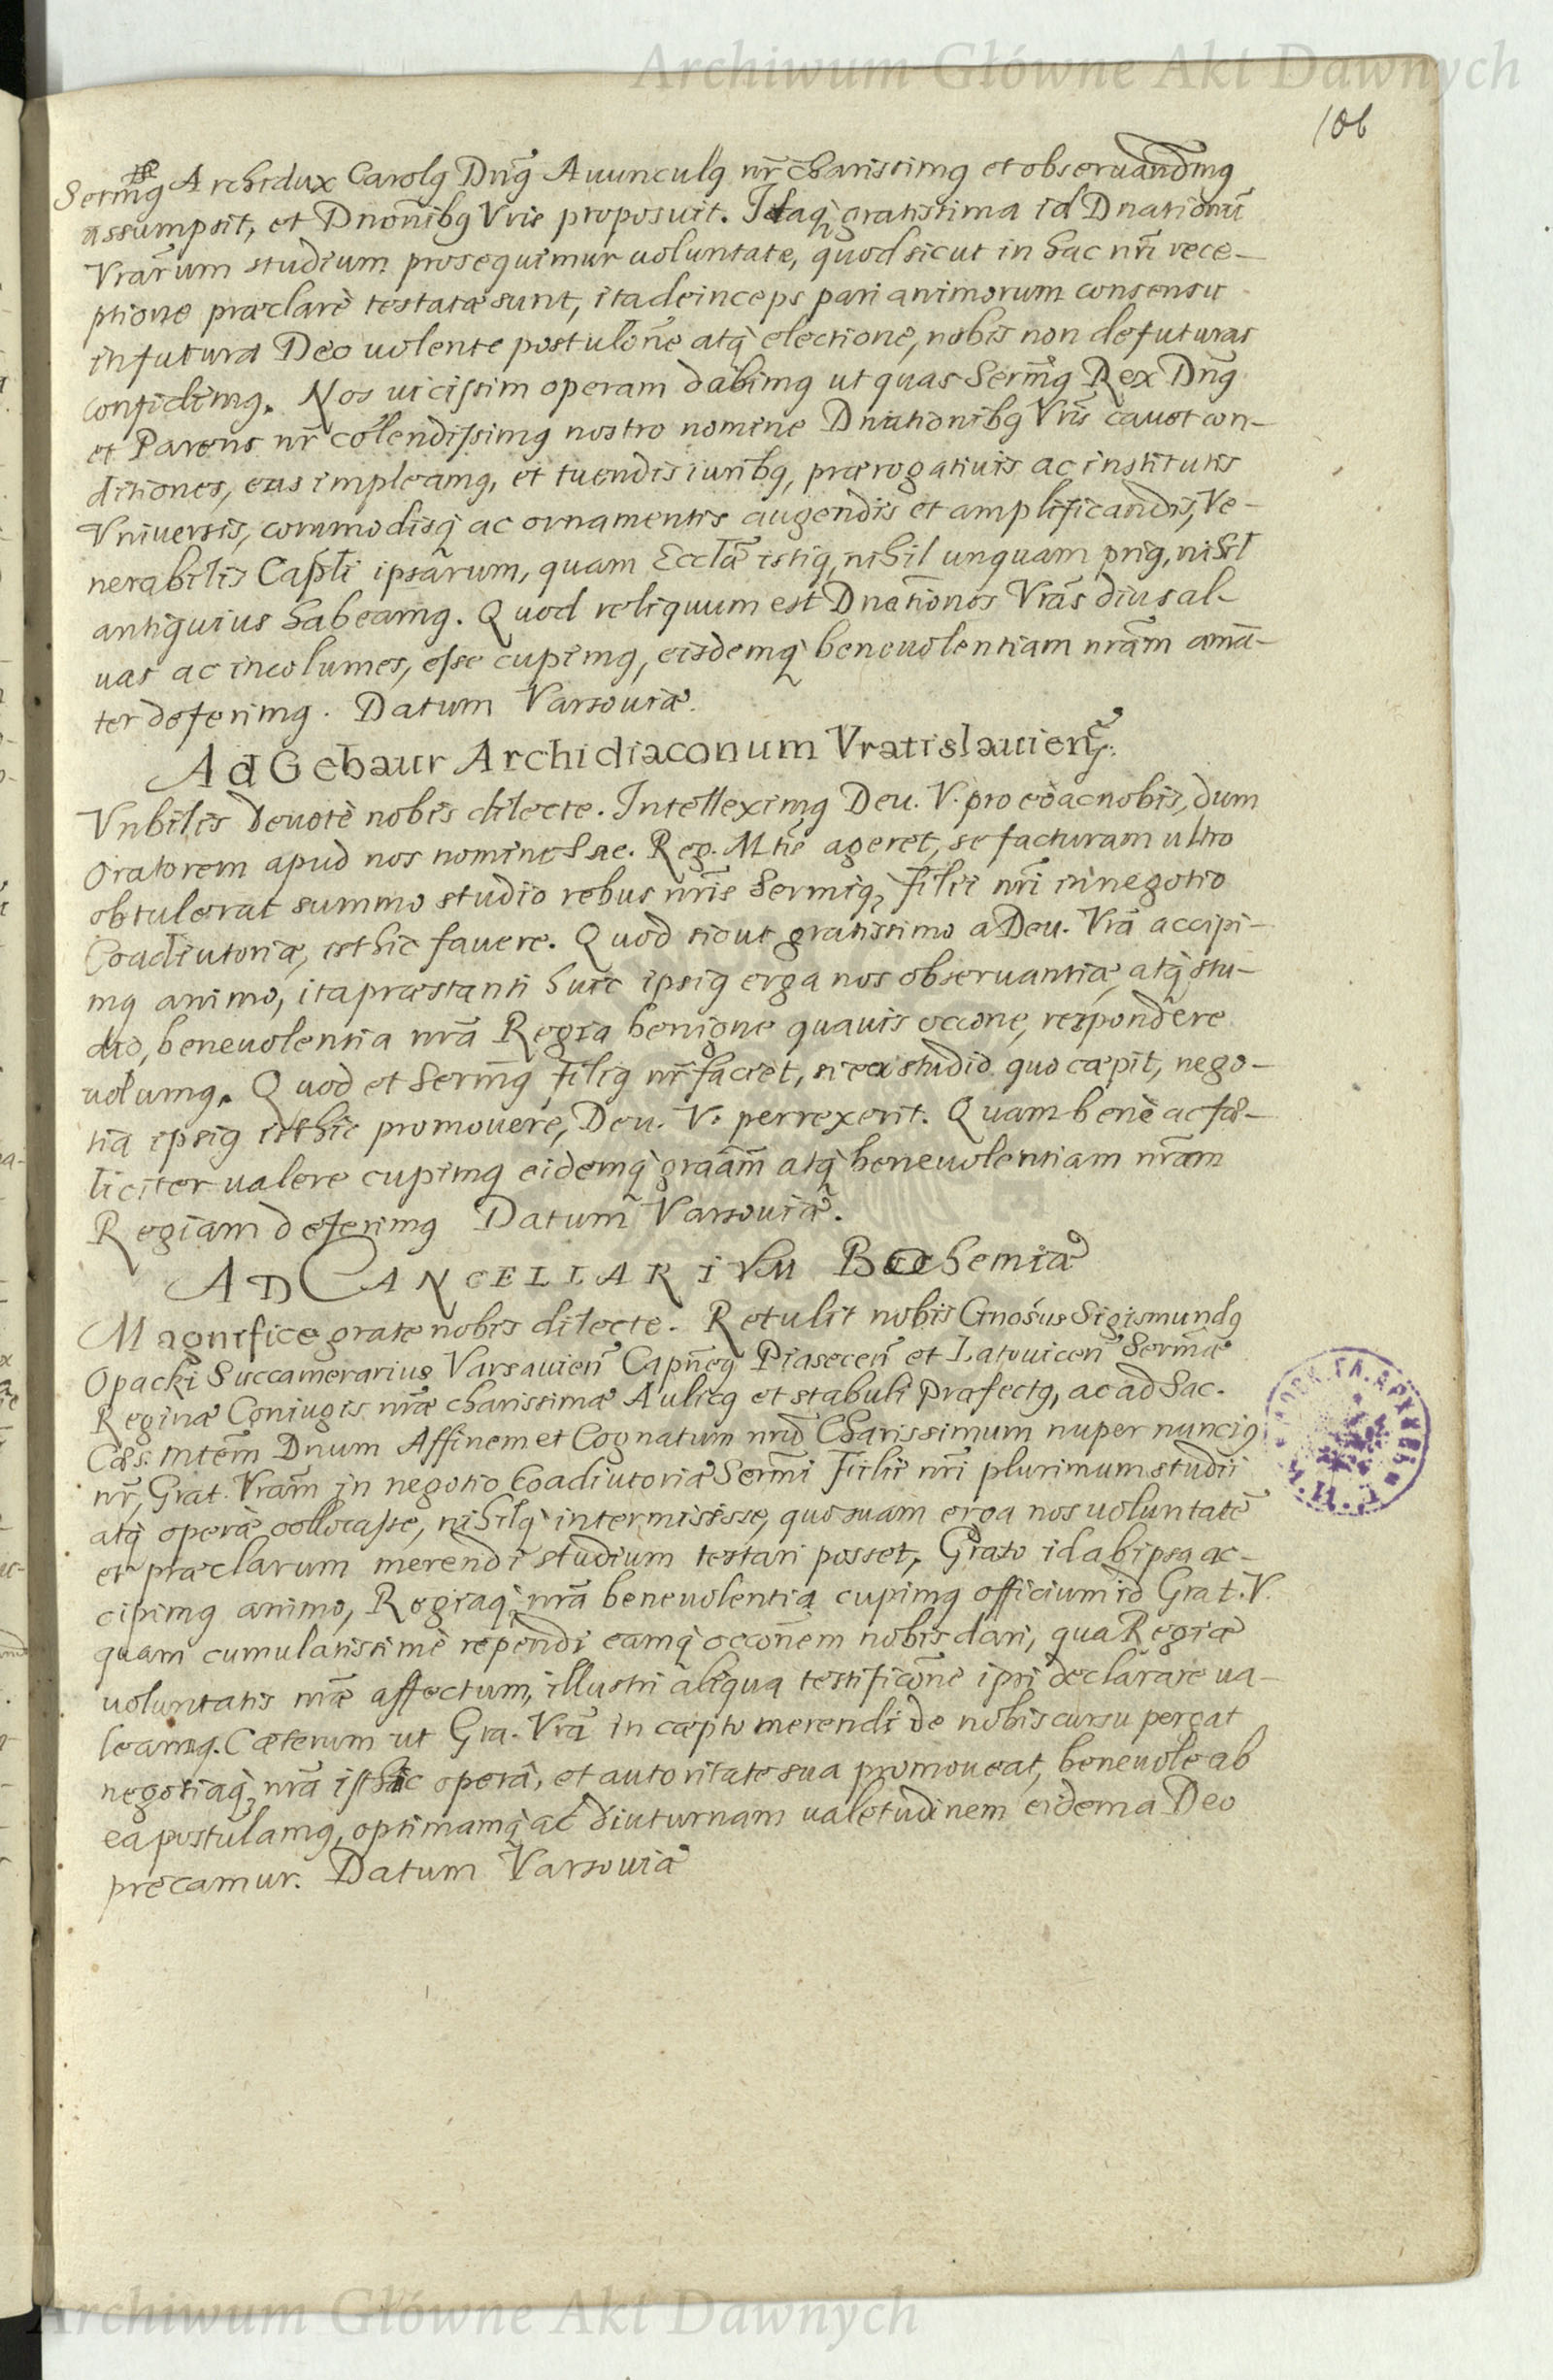 Archiwum Główne Akt Dawnych
106
Sermq̃ Archidux Carolq Dnq̃ Auunculq nr̃ charissimq et obseruandmq
assumpsit, et Dnonibq Vris proposuit. Itaq gratissima id Dnationũ
Vrarum studium prosequimur uoluntate, quod sicut in hac nri rece-
ptione præclarè testatæ sunt, ita deinceps pari animorum consensu
in futura Deo uolente postulone atq electione, nobis non defuturas
confidimq. Nos uicissim operam dabimq ut quas Sermq̃ Rex Dnq̃
et Parens nr̃ colendissimq nostro nomine Dnationibq Vris cauet con-
ditiones, eas impleamq, et tuendis iuribq, prærogatiuis ac institutis
Vniuersis, commodisq ac ornamentis augendis et amplificandis, Ve-
nerabilis Capli ipsarum, quam Ecclæ istiq, nihil unquam priq, nihil
antiquius habeamq. Quod reliquum est Dnationes Vras diu sal-
uas ac incolumes, esse cupimq, eisdemq beneuolentiam nram amã-
ter deferimq. Datum Varsouiæ.
Ad Gebaur Archidiaconum Vratislauien̄.
Vnbilis Deuotè nobis dilecte. Intelleximq Deu. V. pro eo ac nobis, dum
Oratorem apud nos nomine Sae. Reg. Mtis ageret, se facturam ultro
obtulerat summo studio rebus nris Sermiq, Filii nri in negotio
Coadiutoriæ, isthic fauere. Quod sicut gratissimo a Deu. Vra accipi-
mq animo, ita præstanti huic ipsiq erga nos obseruantiæ, atq stu-
dio, beneuolentia nra Regia benigne quauis occone, respondere
uolumq. Quod et Sermq̃ Filiq nr̃ faciet, si ea studio quo cæpit, nego-
tia ipsiq isthic promouere, Deu. V. perrexerit. Quam benè ac fæ-
liciter ualere cupimq eidemq graãm atq beneuolentiam nram
Regiam deferimq Datum Varsouiæ.
AD CANCELLARIVM Boohemiæ
Magnifice grate nobis dilecte. Retulit nobis Gnosus Sigismundq
Opacki Succamerarius Varsauien̄ Capneq Piasecen̄ et Latouicen̄ Sermæ
Reginæ Coniugis nræ charissimæ Aulicq et stabuli Præfectq, ac ad Sac.
Cæs. Mtem Dnum Affinem et Cognatum nrũ Charissimum nuper nunciq
nr̃, Grat. Vram in negotio Coadiutoriæ Sermi Filii nri plurimum studii
atq operæ collocasse, nihilq intermisisse, quo suam erga nos uoluntatẽ
et præclarum merendi studium testari posset, Grato id ab ipsa ac-
cipimq animo, Regiaq nra beneuolentia cupimq officium id Grat. V.
quam cumulatissimè rependi eamq occonem nobis dari, qua Regiæ
uoluntatis nræ affectum, illustri aliqua testificone ipsi declarare ua-
leamq. Cæterum ut Gra. Vra in cæpto merendi de nobis cursu pergat
negotiaq nra isthic opera, et autoritate sua promoueat, beneuole ab
ea postulamq, optimamq ac diuturnam ualetudinem eidem a Deo
precamur. Datum Varsouiæ
Archiwum Główne Akt Dawnych